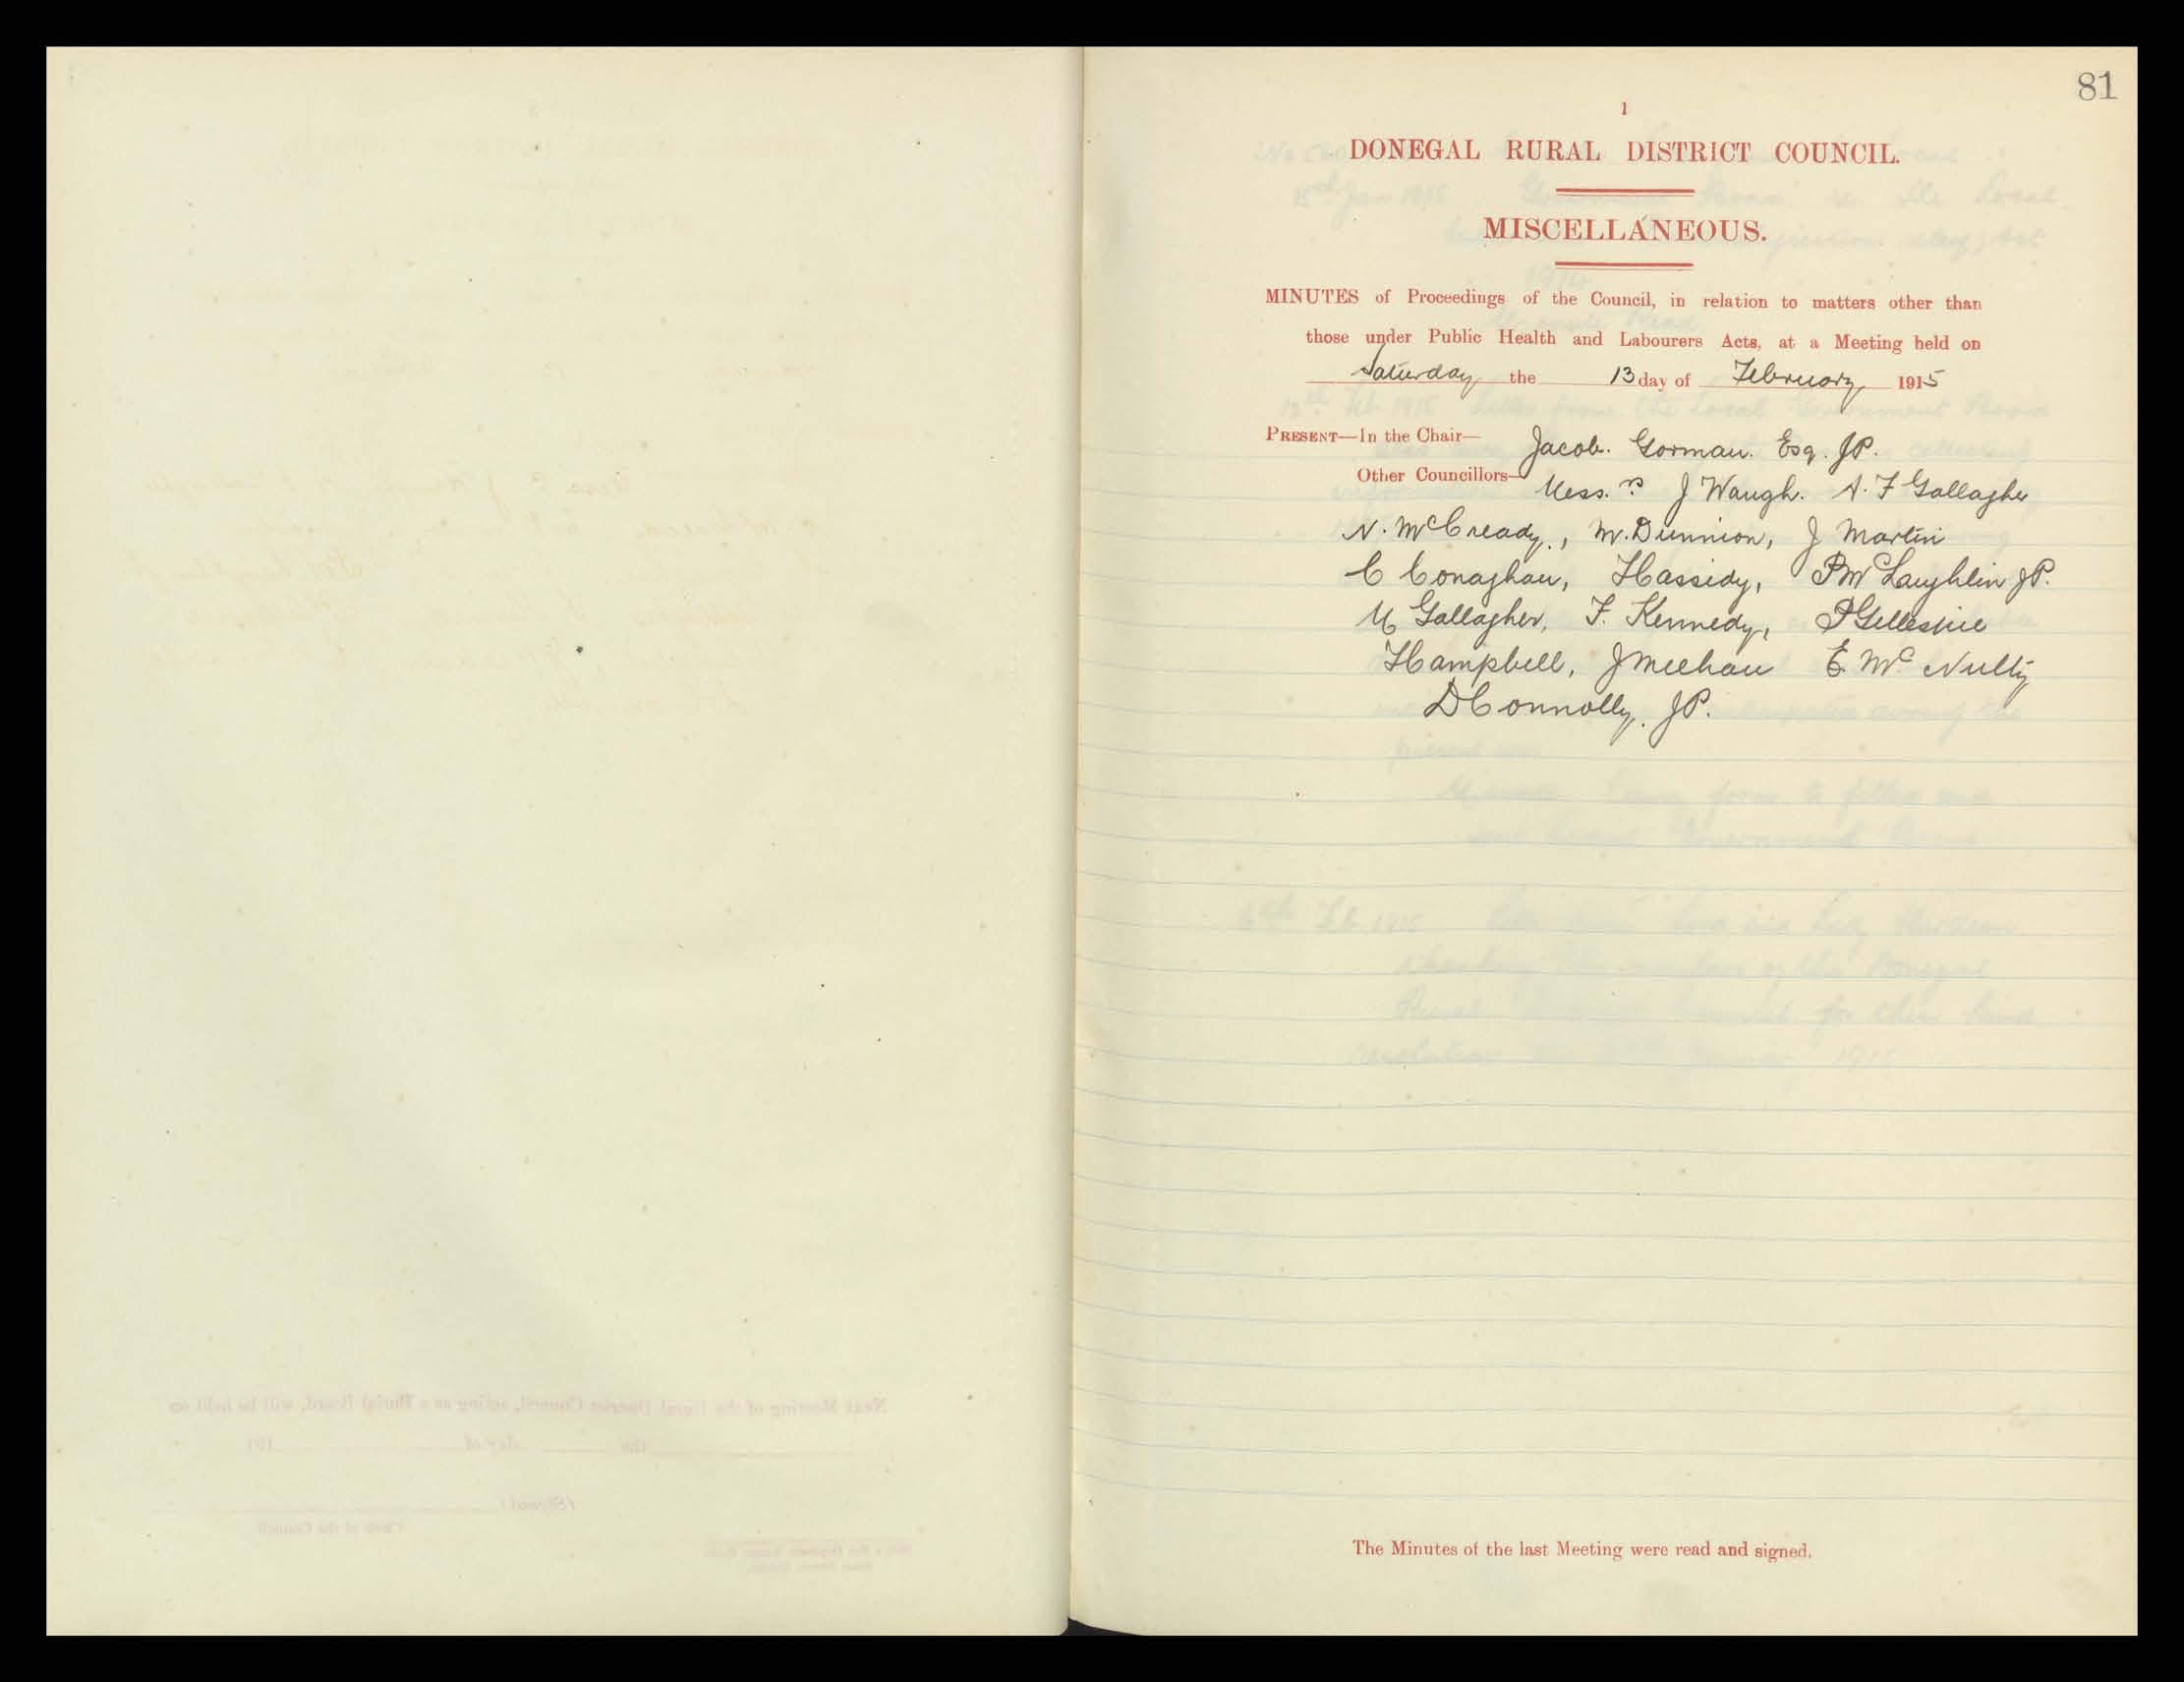 81
1
DONEGAL RURAL DISTRICT COUNCIL.
MISCELLANEOUS.
MINUTES of Proceedings of the Council, in relation to matters other than
those under Public Health and Labourers Acts, at a Meeting held on
Saturday the 13 day of February 1915
PRESENT—In the Chair— Jacob. Gorman. Esq. JP.
Other Councillors— Mess.rs J Waugh. A. F Gallagher
N. McCready., M. Dunnion, J Martin
C Conaghan, H Cassidy, P McLaughlin JP.
M Gallagher, F. Kennedy, P Gillespie
H Campbell, J Meehan E. Mc Nulty
D Connolly. JP.
The Minutes of the last Meeting were read and signed.